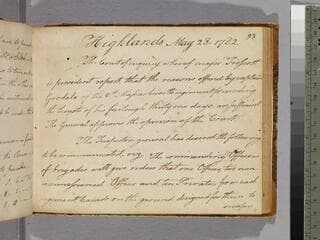 93
Highlands May 23. 1782
The Court of inquiry whereof major Trescott
is president report that the reasons offered by captain
of the 6th Massachusetts regiment for exceeding
the limits of his furlough thirty one days are sufficient
The General approves the opinion of the Court.
The Inspector general has desired the following
to be communicated, viz. The commanding Officers
of brigades will give orders that one Officer, two non
commissioned Officers and ten Privates from each
regiment parade on the ground designed for them to